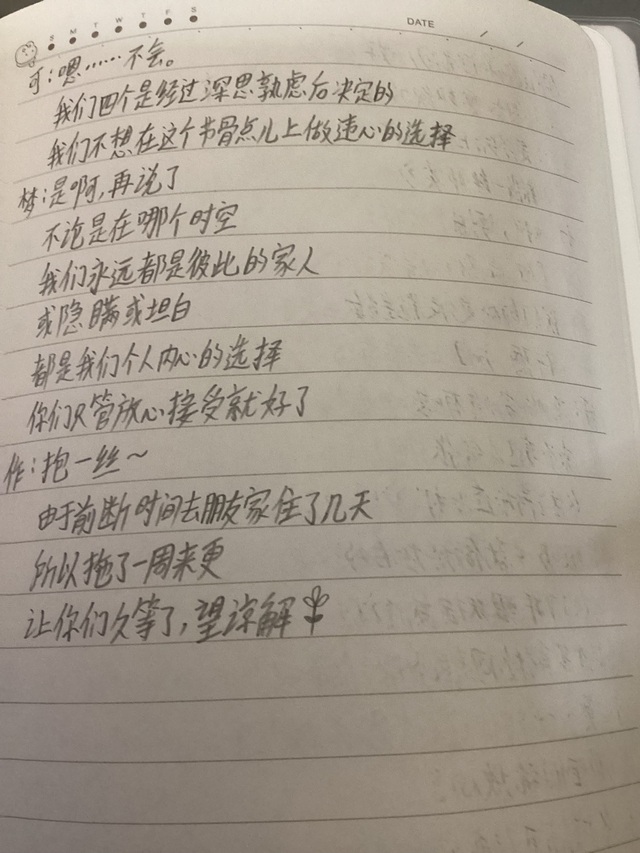 S M T W T F S
DATE / /
可：嗯……不会。
我们四个是经过深思孰虑后决定的
我们不想在这个节骨点儿上做违心的选择
梦：是啊，再说了
不论是在哪个时空
我们永远都是彼此的家人
或隐瞒或坦白
都是我们个人内心的选择
你们只管放心接受就好了
作：抱一丝～
由于前断时间去朋友家住了几天
所以拖了一周来更
让你们久等了，望谅解